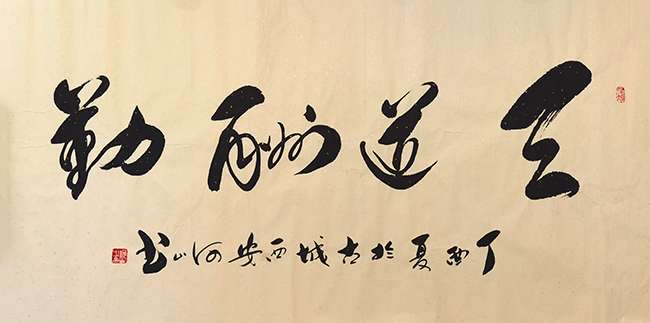 天道酬勤
丁酉夏於古城西安河山书